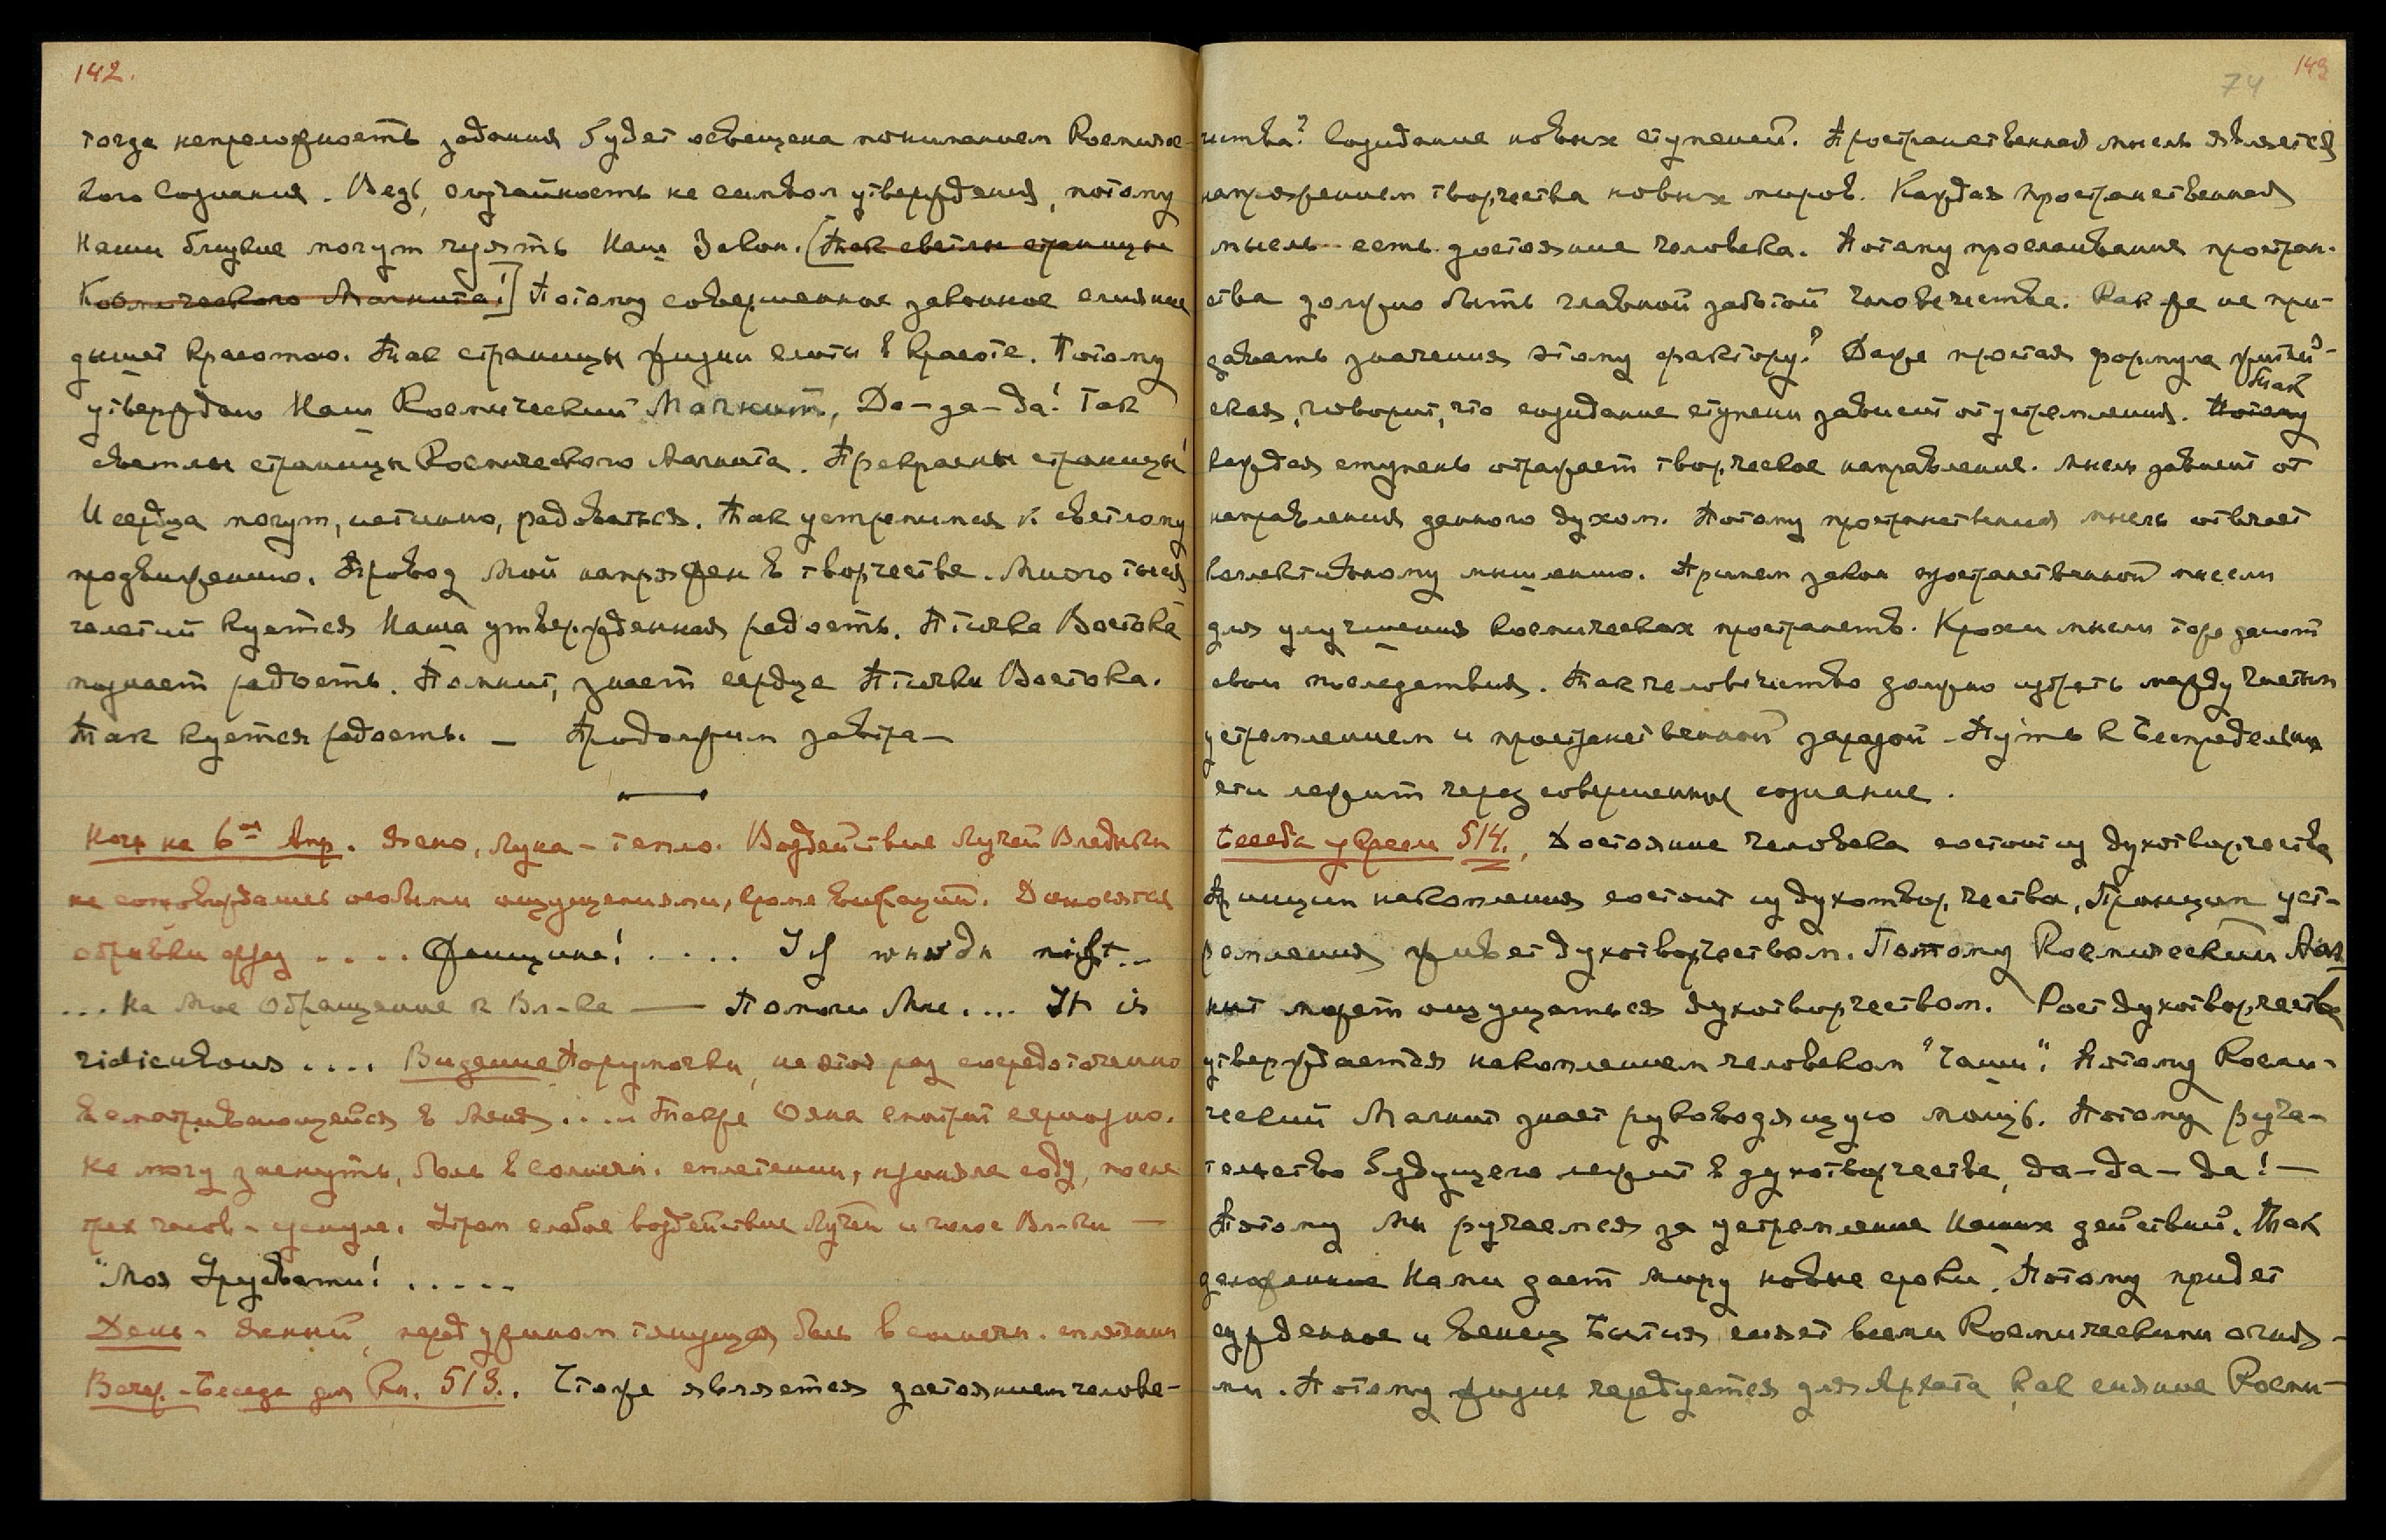 142.
тогда непреложность задания будет освещена пониманием Космичес-
кого Сознания. Ведь, случайность не символ утверждения, потому
Наши близкие могут чуять Наш Закон. [Так светлы страницы
Космического Магнита!] Потому совершенное законное слияние
дышит красотою. Так страницы жизни слиты в красоте. Потому
утверждаю Наш Космический Магнит, Да-да-да! Так
светлы страницы Космического Магнита. Прекрасны страницы!
И сердца могут, истинно, радоваться. Так устремимся к светлому
продвижению. Провод Мой напряжен в творчестве. Много тыся-
челетий куется Наша утвержденная радость. Птичка Востока
познает радость. Помнит, знает сердце Птички Востока.
Так куется радость. — Продолжим завтра —
Ночь на 6ое Апр. Ясно, Луна - тепло. Воздействие Лучей Владыки
не сопровождалось особыми ощущениями, кроме вибраций. Доносятся
обрывки фраз .... Женщина! .... Ich wurde nicht...
... На Мое Обращение к Вл-ке — Помоги Мне.... It is
ridiculous .... Видение Поруmочки, на этот раз сосредоточенно
всматривающейся в Меня .... Также Ояна смотрит серьезно.
Не могу заснуть, боль в солнечн. сплетении, приняла соду, после
трех часов - уснула. Утром слабое воздействие Лучей и голос Вл-ки —
"Моя Урусвати! .....
День. Ясный, перед ужином тянущая боль в солнечн. сплетении
Вечер. - Беседа для Кн. 513.. Что же является достоянием челове-
74
143
чества? Созидание новых ступеней. Пространственная мысль является
напряжением творчества новых миров. Каждая пространственная
мысль есть достояние человека. Потому прослаивание простран-
ства должно быть главной заботой человечества. Как же не при-
давать значения этому фактору? Даже простая формула житей-
Так
ская, говорит, что созидание ступени зависит от устремления. Потому
каждая ступень отражает творческое направление. Мысль зависит от
направления данного духом. Потому пространственная мысль отвечает
коллективному мышлению. Примем закон пространственной мысли
для улучшения космических пространств. Крохи мысли тоже дают
свои последствия. Так человечество должно избрать между чистым
устремлением и пространственной заразой. Путь к Беспредельн-
ости лежит через совершенные сознание.
Беседа у кресла 514., Достояние человека состоит из духотворчества
Принцип накопления состоит из духотворчества, Принцип уст-
ремления живет духотворчеством. Потому Космический Маг-
нит может ощущаться духотворчеством. Рост духотворчества
утверждается накоплением человеком "Чаши". Потому Косми-
ческий Магнит знает руководящую мощь. Потому руча-
тельство будущего лежит в духотворчестве, да-да-да! —
Потому Мы ручаемся за устремление Наших действий. Так
заложенное Нами дает миру новые сроки. Потому придет
сужденное и Венец Бытия сияет всеми Космическими огня-
ми. Потому жизнь чередуется для Архата, как сияние Косми-